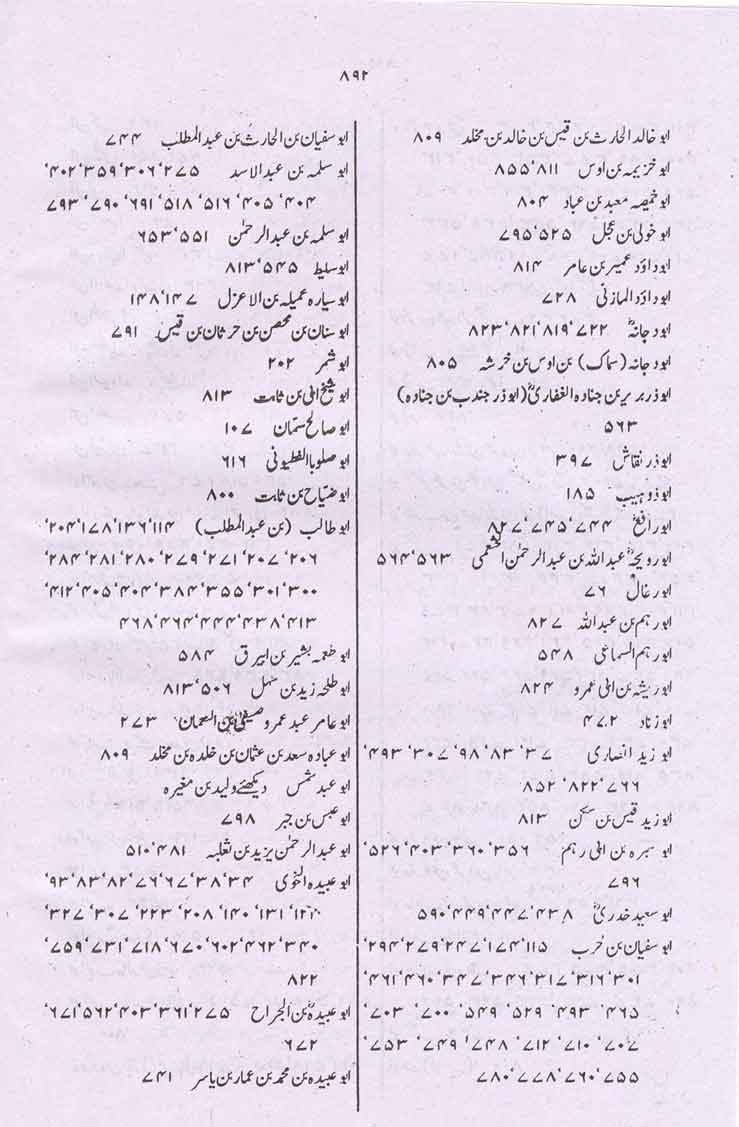 ۸۹۲
ابو خالد الحارث بن قیس بن خالد بن مخلد ۸۰۹
ابو خزیمہ بن اوس ۸۱۱٬۸۵۵
ابو خمصہ معبد بن عباد ۸۰۴
ابو خولی بن عجل ۵۲۵٬۷۹۵
ابو داؤد عمیر بن عامر ۸۱۴
ابو داؤد المازنی ۷۲۸
ابو دجانہؓ ۷۲۲٬۸۱۹٬۸۲۱٬۸۲۳
ابو دجانہ (سماک) بن اوس بن خرشہ ۸۰۵
ابو ذر بریر بن جنادہ الغفاریؓ (ابو ذر جندب بن جنادہ)
۵۶۳
ابو ذر نقاش ۳۹۷
ابو ذوہیب ۱۸۵
ابو رافع ۷۴۴٬۷۴۵٬۸۲۷
ابو رویحہؓ عبداللہ بن عبدالرحمٰن الخثعمی ۵۶۳٬۵۶۴
ابو رغال ۷۶
ابو رہم بن عبداللہ ۸۲۷
ابو رہم السماعی ۵۴۸
ابو ریشہ بن ابی عمرو ۸۲۴
ابو زناد ۴۷۲
ابو زید انصاری ۳۷٬۸۳٬۹۸٬۳۰۷٬۴۹۳٬
۷۶۶٬۸۲۲٬۸۵۲
ابو زید قیس بن سکن ۸۱۳
ابو سبرہ بن ابی رہم ۳۵۶٬۳۶۰٬۴۰۳٬۵۲۶٬
۷۹۶
ابو سعید خدریؓ ۴۳۸٬۴۴۷٬۴۴۹٬۵۹۰
ابو سفیان بن حرب ۱۱۵٬۱۷۴٬۲۴۷٬۲۷۹٬۲۹۴
۳۰۱٬۳۱۶٬۳۱۷٬۳۴۶٬۳۴۷٬۴۶۰٬۴۶۱
۴۶۵٬۴۹۳٬۵۲۹٬۵۴۹٬۷۰۰٬۷۰۳٬
۷۰۷٬۷۱۰٬۷۱۲٬۷۴۸٬۷۴۹٬۷۵۳
۷۵۵٬۷۶۰٬۷۷۸٬۷۸۰
ابو سفیان بن الحارث بن عبدالمطلب ۷۴۴
ابو سلمہ بن عبدالاسد ۲۷۵٬۳۰۶٬۳۵۹٬۴۰۲٬
۴۰۴٬۴۰۵٬۵۱۶٬۵۱۸٬۶۹۱٬۷۹۰٬۷۹۳
ابو سلمہ بن عبدالرحمٰن ۵۵۱٬۶۵۳
ابو سلیط ۵۴۵٬۸۱۳
ابو سیارہ عمیلہ بن الاعزل ۱۴۷٬۱۴۸
ابو سنان بن محصن بن حرثان بن قیس ۷۹۱
ابو شمر ۲۰۲
ابو شیخ ابی بن ثابت ۸۱۳
ابو صالح سمّان ۱۰۷
ابو صلوبا الفطیونی ۶۱۶
ابو ضیاح بن ثابت ۸۰۰
ابو طالب (بن عبدالمطلب) ۱۱۴٬۱۳۶٬۱۷۸٬۲۰۴٬
۲۰۶٬۲۰۷٬۲۷۱٬۲۷۹٬۲۸۰٬۲۸۱٬۲۸۴٬
۳۰۰٬۳۰۱٬۳۵۵٬۳۸۴٬۴۰۴٬۴۰۵٬۴۱۲٬
۴۱۳٬۴۳۸٬۴۴۴٬۴۶۴٬۴۶۸
ابو طعمہ بشیر بن ابیرق ۵۸۴
ابو طلحہ زید بن سہل ۵۰۶٬۸۱۳
ابو عامر عبد عمرو صیفی بن النعمان ۲۷۳
ابو عبادہ سعد بن عثمان بن خلدہ بن مخلد ۸۰۹
ابو عبد شمس دیکھئے ولید بن مغیرہ
ابو عبس بن جبر ۷۹۸
ابو عبدالرحمٰن یزید بن ثعلبہ ۴۸۱٬۵۱۰
ابو عبیدہ النحوی ۳۴٬۳۸٬۶۷٬۷۶٬۸۲٬۸۳٬۹۳٬
۱۲۱٬۱۳۱٬۱۴۰٬۲۰۸٬۲۲۳٬۳۰۷٬۳۲۷٬
۳۴۰٬۴۶۲٬۶۰۲٬۶۷۰٬۷۱۸٬۷۳۱٬۷۵۹٬
۸۲۲
ابو عبیدہؓ بن الجراح ۲۷۵٬۳۶۱٬۴۰۳٬۵۶۲٬۶۷۱٬
۶۷۲
ابو عبیدہ بن محمد بن عمار بن یاسر ۷۴۱